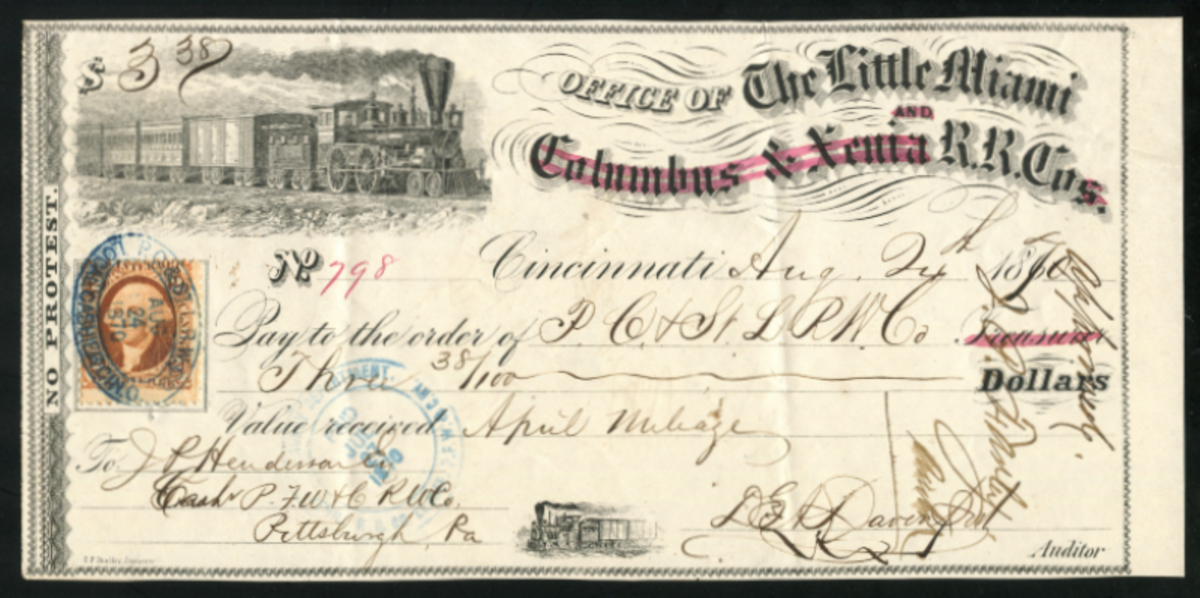 $ 3 38
OFFICE OF The Little Miami
AND
Columbus & Xenia R.R. Cos.
NO PROTEST.
No 798
Cincinnati Aug. 24th 1870
Pay to the order of P. C. & St. L. R.W. Co. Treasurer
Three 38/100 Dollars
Value received April Mileage
To J P Henderson
Cash P. F. W & C R.W Co.
Pittsburgh, Pa
Auditor
AUG
24
1870